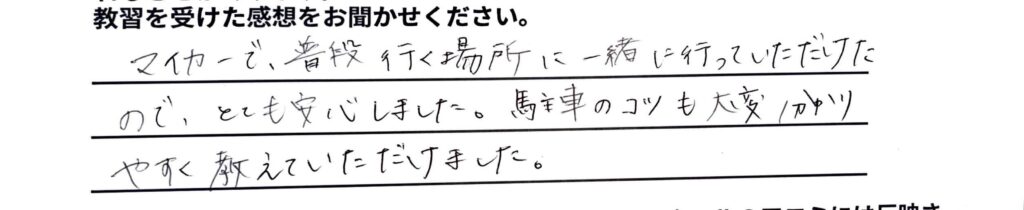 教習を受けた感想をお聞かせください。
マイカーで、普段行く場所に一緒に行っていただけた
ので、とても安心しました。駐車のコツも大変分かり
やすく教えていただけました。